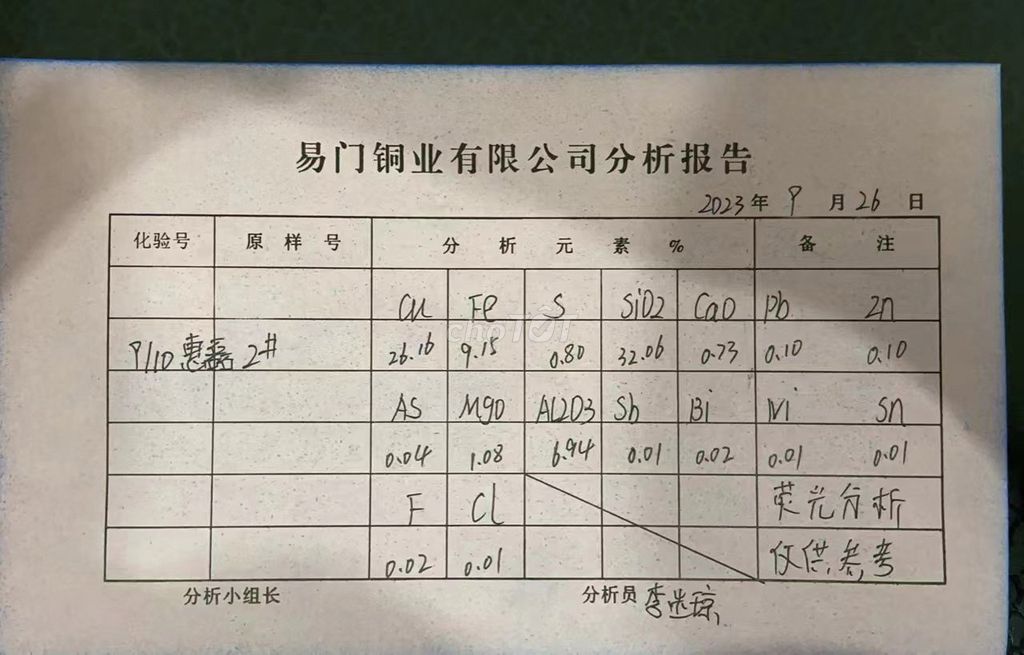 易门铜业有限公司分析报告
2023年 9 月 26 日
化验号 原样号 分析元素% 备注
Cu Fe S SiO2 CaO Pb Zn
9/10 惠 2# 26.16 9.15 0.80 32.06 0.73 0.10 0.10
AS MgO Al2O3 Sb Bi Ni Sn
0.04 1.08 6.94 0.01 0.02 0.01 0.01
F Cl 荧光分析
0.02 0.01 仅供参考
分析小组长 分析员 李 琼
choTOT